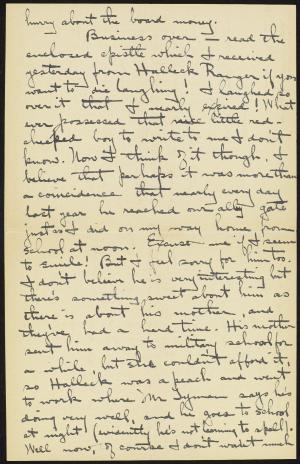 hurry about the board money.
Business over — read the
enclosed epistle which I received
yesterday from Halleck Ranger if you
want to die laughing! I laughed so
over it that I nearly expired! What
ever possessed that nice little red-
cheeked boy to write to me I don't
know. Now I think of it though, I
believe that perhaps it was more than
a coincidence that nearly every day
last year he reached our ally gate
just as I did on my way home from
school at noon. Excuse me if I seem
to smile! But I feel sorry for him too.
I don't believe he is very interesting but
there's something sweet about him as
there is about his mother, and
they've had a hard time. His mother
sent him away to military school for
a while, but she couldn't afford it,
so Halleck was a peach and went
to work where Mr Lyman says he's
doing very well, and he goes to school
at night (evidently he's not learning to spell).
Well now, of course I don't want much